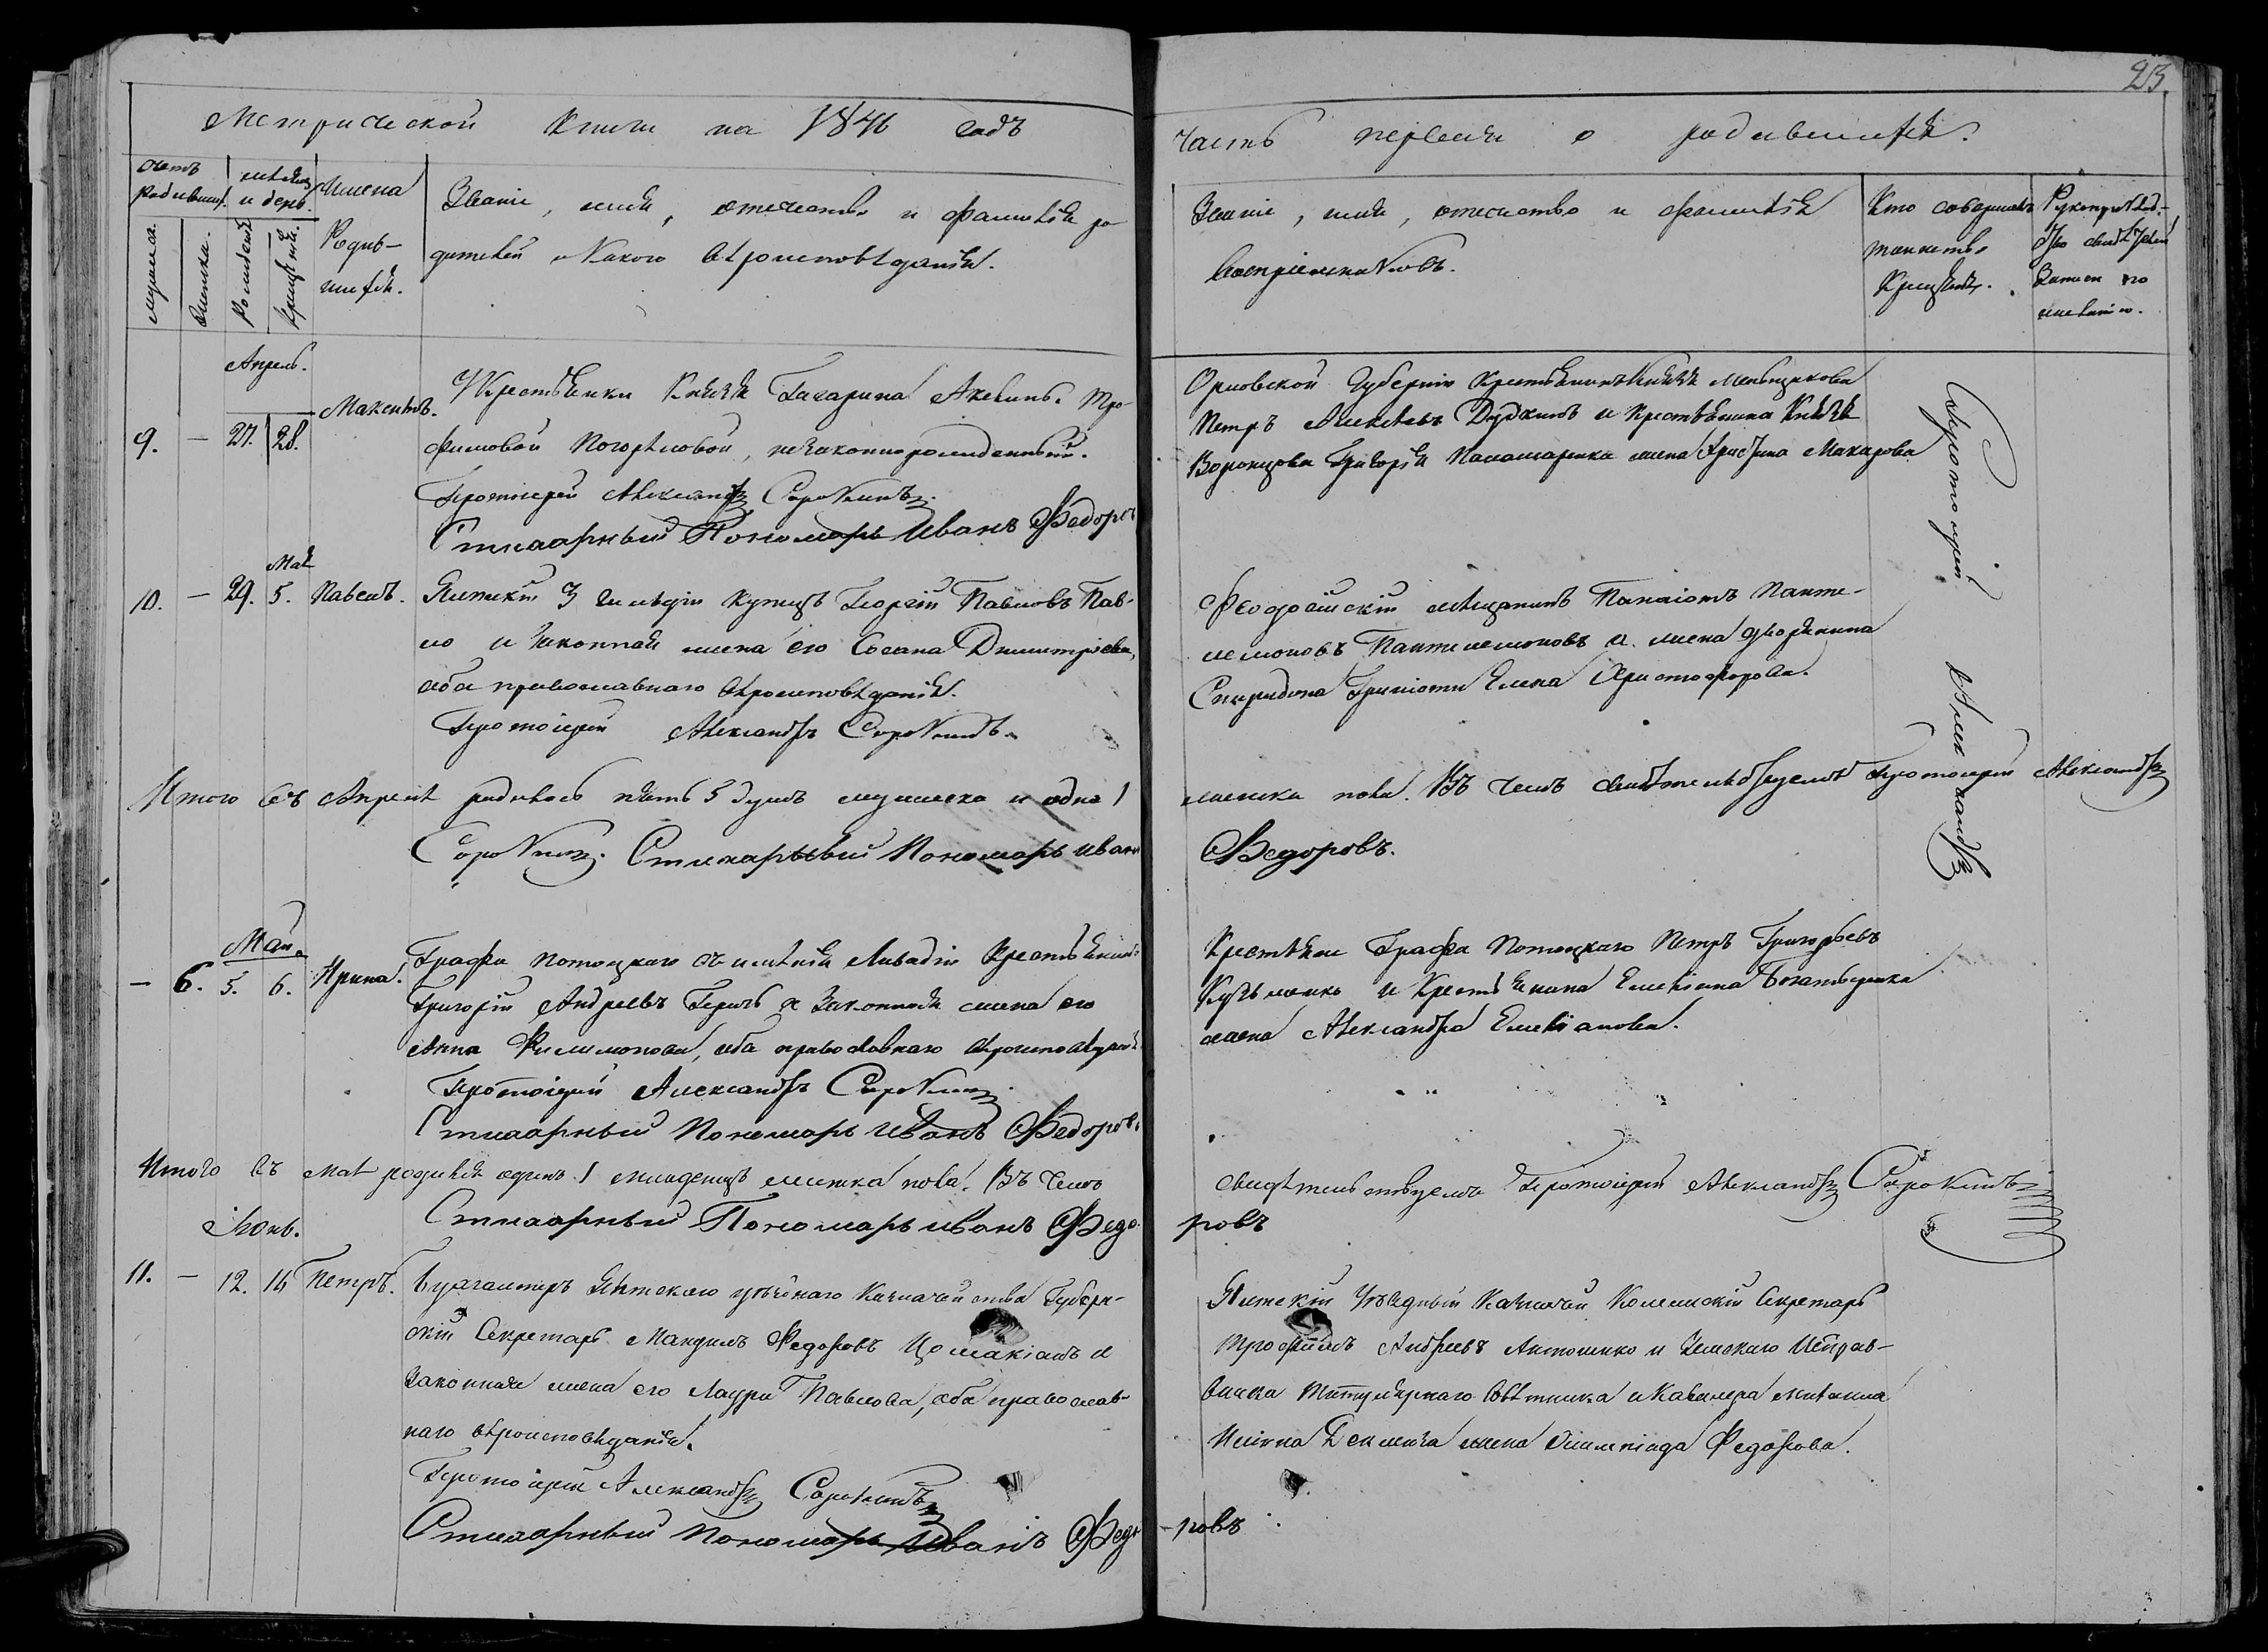 23.
Метрической Книги на 1846 годъ
часть первая о родившихся.
Счетъ родивших.
мѣсяцъ и день.
Имена Родив-
шихся.
мужеска.
женска.
Рожденія
Крещенія.
Званіе, имя, отчество и фамилія ро
дителей и Какого вѣроисповѣданія.
Званіе, имя, отчество и фамилія
Воспріемниковъ.
Кто совершалъ
таинство
Крещенія.
Рукоприклад-
ство свидѣтелей
Записи по
желанію.
Апрель.
9. — 27. 28. Максимъ.
У Крестьянки Князя Гагарина Акелины Тро
фимовой Погорѣловой, незаконнорожденный.
Протоіерей Александръ Сорокинъ.
Стихарный Пономарь Иванъ Федоровъ
Орловской Губерніи Крестьянинъ Князя Меньщикова
Петръ Алексѣевъ Дудкинъ и Крестьянина Князя
Воронцова Григорія Паламаренка жена Христина Макарова
Протоіерей Александръ
Мая
10. — 29. 5. Павелъ.
Ялтинскій 3 гильдіи Купецъ Георгій Павловъ Пав-
ло и Законная жена его Сосана Димитріева,
оба православнаго вѣроисповѣданія.
Протоіерей Александръ Сорокинъ.
Феодосійскій мѣщанинъ Панаіотъ Панте-
лемоновъ Пантилемоновъ и жена дворянина
Спиридона Гриніоти Елена Христофорова.
Итого въ Апрелѣ родилось пять 5 душъ мужеска и одна 1
женска пола. Въ чемъ свидѣтельствуемъ Протоіерей Александръ
Сорокинъ. Стихарный Пономарь Иванъ
Федоровъ.
Май.
— 6. 5. 6. Ирина.
Графа Потоцкаго съ имѣнія Ливадіи Крестьянинъ
Григорій Андреевъ Герусъ и Законная жена его
Анна Филимонова, оба православнаго вѣроисповѣданія
Протоіерей Александръ Сорокинъ
Стихарный Пономарь Иванъ Федоровъ
Крестьяне Графа Потоцкаго Петръ Григорьевъ
Кузьменко и Крестьянина Емеліана
жена Александра Емеліанова.
Итого въ маѣ родился одинъ 1 младенецъ женска пола. Въ чемъ
свидѣтельствуемъ Протоіерей Александръ Сорокинъ
Стихарный Пономарь Иванъ Федо-
ровъ
Іюнь.
11. — 12. 16 Петръ.
Бухгалтеръ Ялтскаго уѣзднаго Казначейства Губерн-
скій Секретарь Мануилъ Федоровъ Цомакіонъ и
законная жена его Лаура Павлова, оба православ-
наго вѣроисповѣданія.
Протоіерей Александръ Сорокинъ
Стихарный Пономарь Иванъ Федо
ровъ
Ялтскій Уѣздный Казначей Колежскій Секретарь
Трофимъ Андреевъ Антоненко и Земскаго Исправ-
ника Титулярнаго Совѣтника и Кавалера
жена Олимпіада Федорова.